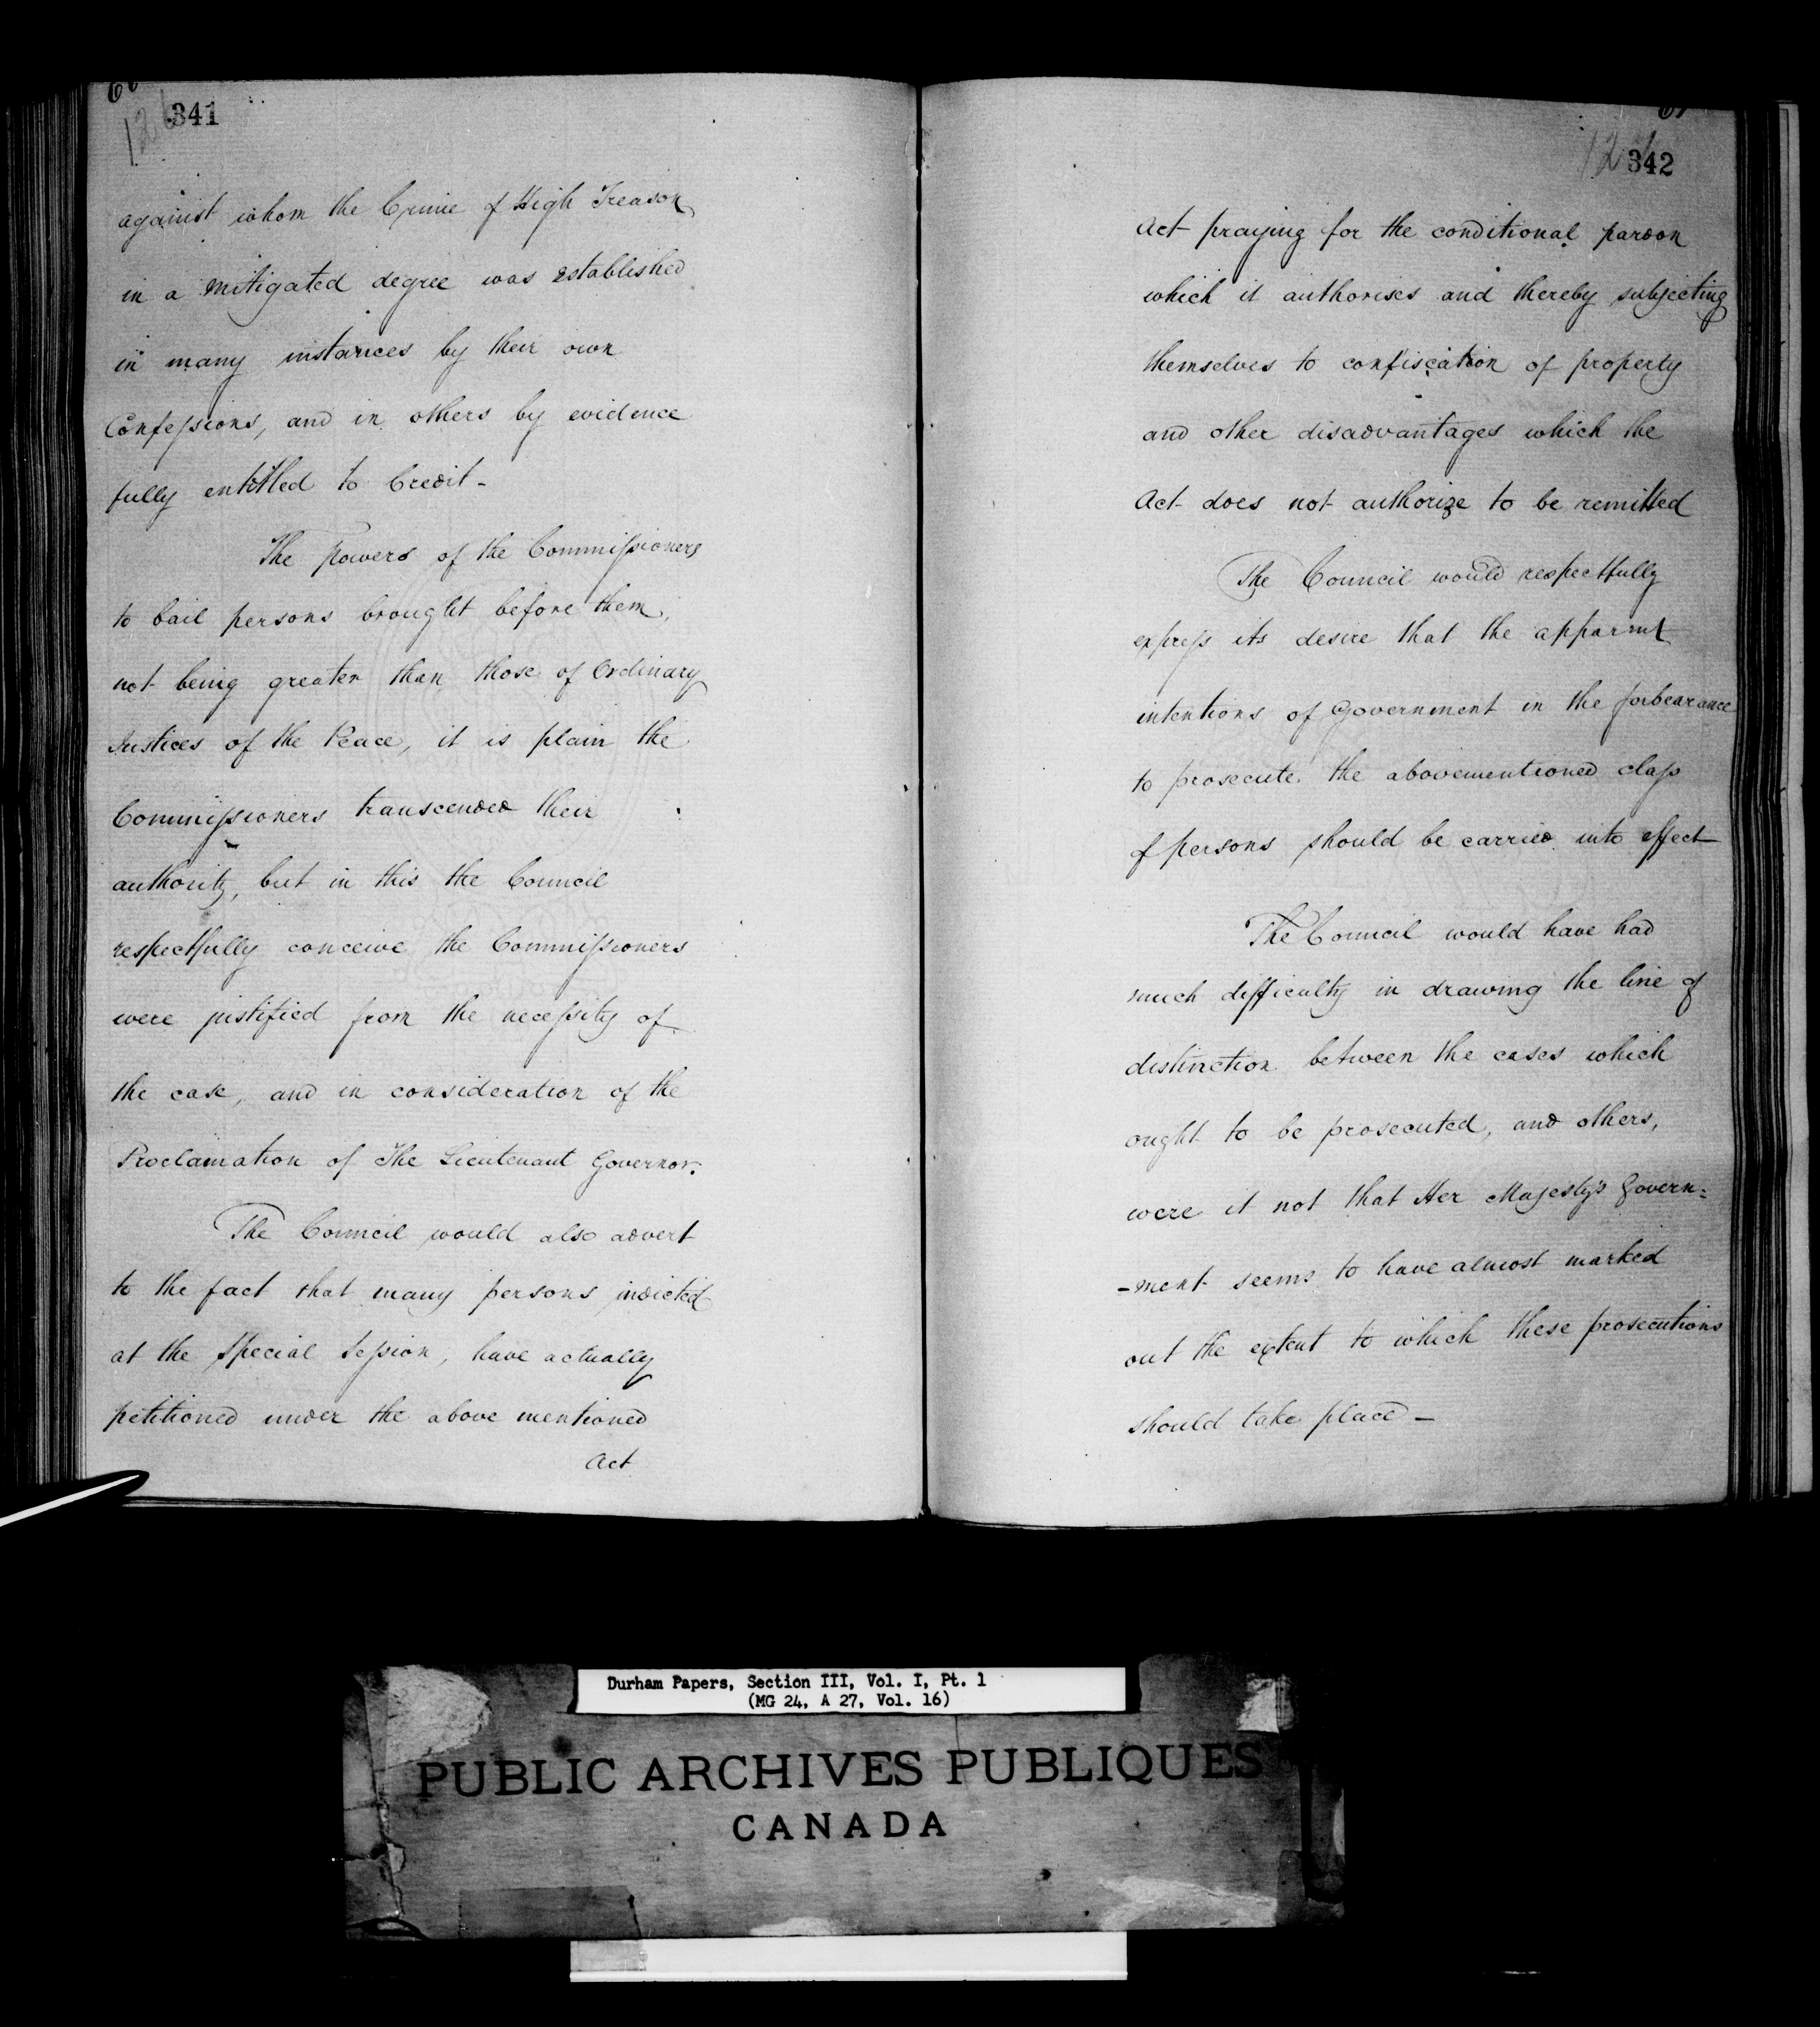 341
against whom the Crime of High Treason
in a mitigated degree was established
in many instances by their own
Confessions, and in others by evidence
fully entitled to Credit -
The powers of the Commissioners
to bail persons brought before them,
not being greater than those of Ordinary
Justices of the Peace, it is plain the
Commissioners transcended their
authority, but in this the Council
respectfully conceive the Commissioners
were justified from the necessity of
the case, and in consideration of the
Proclamation of The Lieutenant Governor.
The Council would also advert
to the fact that many persons indicted
at the Special Session, have actually
petitioned under the above mentioned
Act
342
Act praying for the conditional pardon
which it authorises and thereby subjecting
themselves to confiscation of property
and other disadvantages which the
Act does not authorize to be remitted
The Council would respectfully
express its desire that the apparent
intentions of Government in the forbearance
to prosecute the abovementioned class
of persons should be carried into effect
The Council would have had
much difficulty in drawing the line of
distinction between the cases which
ought to be prosecuted, and others,
were it not that Her Majesty's Govern=
-ment seems to have almost marked
out the extent to which these prosecutions
should take place -
Durham Papers, Section III, Vol. I, Pt. 1
(MG 24, A 27, Vol. 16)
PUBLIC ARCHIVES PUBLIQUES
CANADA